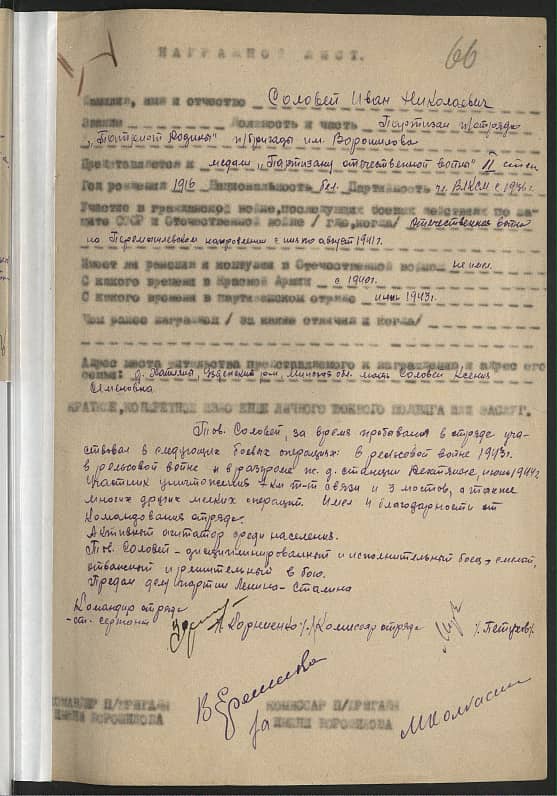 66
НАГРАДНОЙ ЛИСТ.
Фамилия, имя и отчество Соловей Иван Николаевич
Звание Должность и часть Партизан п/отряда
"Патриот Родины" п/бригады им. Ворошилова
Представляется к медали "Партизану отечественной войны" II степ
Год рождения 1916 Национальность бел. Партийность чл. ВЛКСМ с 1936 г.
Участие в гражданской войне, последующих боевых действиях по за-
щите СССР и Отечественной войне /где, когда/ Отечественная война
по Перемышлевском направлении с по август 1941 г.
Имеет ли ранения и контузии в Отечественной войне не имел.
С какого времени в Красной Армии с 1940 г.
С какого времени в партизанском отряде июнь 1943 г.
Чем ранее награжден /за какие отличия и когда/
Адрес места жительства представляемого к награждению, и адрес его
семьи: д. Узденский р-н, Минской обл. мать Соловей Ксения
Семеновна
КРАТКОЕ, КОНКРЕТНОЕ ИЗЛОЖЕНИЕ ЛИЧНОГО БОЕВОГО ПОДВИГА ИЛИ ЗАСЛУГ.
Тов. Соловей, за время пребывания в отряде уча-
ствовал в следующих боевых операциях: в рельсовой войне 1943 г.
в рельсовой войне и в разгроме ж.д. станции июнь 1944 г.
Участник уничтожения км т-т связи и 3 мостов, а также
многих других мелких операций. Имел 4 благодарности от
Командования отряда.
Активный агитатор среди населения.
Тов. Соловей - дисциплинированный и исполнительный боец, смелый,
отважный и решительный в бою.
Предан делу партии Ленина-Сталина
Командир отряда
-ст. сержант /Корниенко/ Комиссар отряда /Петухов/
КОМАНДИР П/БРИГАДЫ КОМИССАР П/БРИГАДЫ
ИМЕНИ ВОРОШИЛОВА за ИМЕНИ ВОРОШИЛОВА